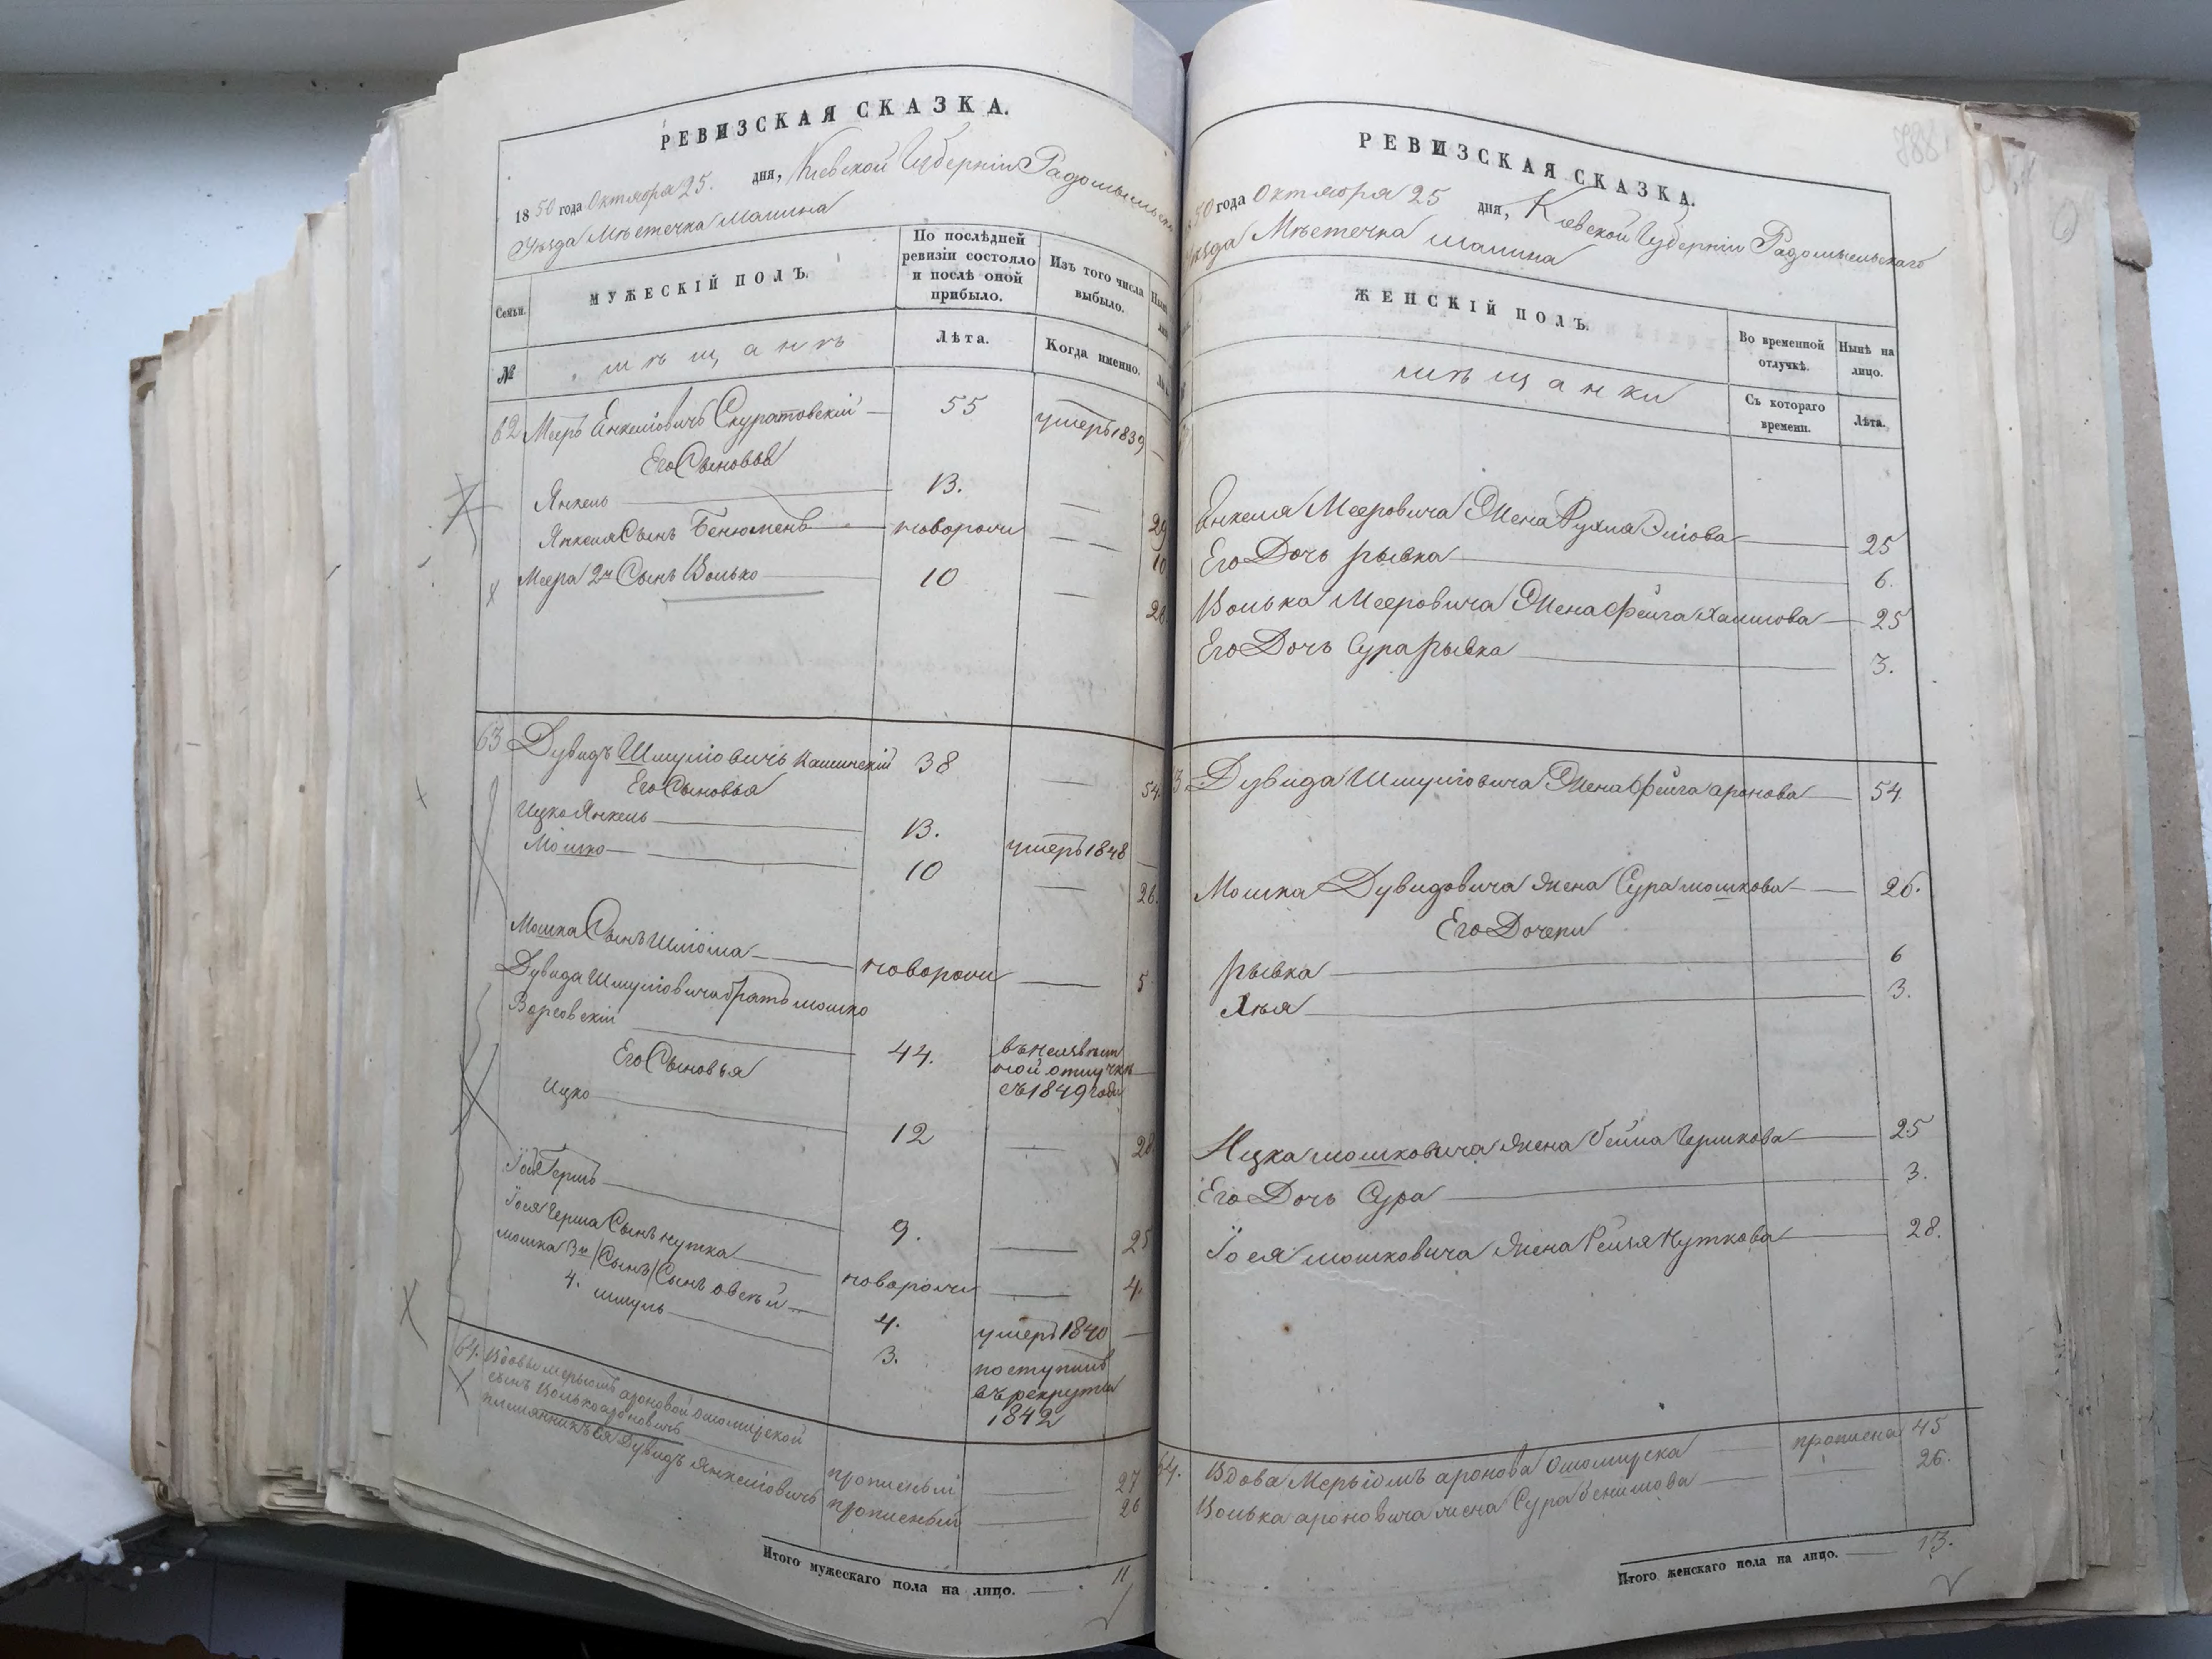 РЕВИЗСКАЯ СКАЗКА.
1850 года Октября 25. дня, Кіевской Губерніи Радомысльска
Уѣзда Мѣстечка Малина
Семьи.
МУЖЕСКІЙ ПОЛЪ.
По послѣдней ревизіи состояло и послѣ оной прибыло.
Изъ того числа выбыло.
№
мѣщанъ
Лѣта.
Когда именно.
62 Мееръ Янкеліовичъ Скуратовскій 55 умеръ 1839
Его Сыновья
Янкель 13. 29
Янкеля Сынъ Бенюменъ новорожд 10
Меера 2й Сынъ Волько 10 26
63 Дувидъ Шмуліовичъ Калинскій 38 54.
Его Сыновья
Ицко Янкель 13. умеръ 1848
Мошко 10 26.
Мошка Сынъ Шліома новорож 5
Дувида Шмуліовича братъ мошко
44. въ неизвѣст
ной отлучкѣ
съ 1849 года
Его Сыновья
Ицко 12 28
Іосягерш 9. 25
Іося герша Сынъ нутка новорожд 4.
мошка 3й Сынъ 4. умеръ 1840
4. шмуль 3. поступилъ
въ рекруты
1842
64. Вдовы мерьямъ ароновой
сынъ Волько ароновичъ прописный 27
племянникъ Ея Дувидъ Янкеліовичъ прописный 26
Итого мужескаго пола на лицо. 11
РЕВИЗСКАЯ СКАЗКА.
50 года Октября 25 дня, Кіевской Губерніи Радомысльскаго
ѣзда Мѣстечка Малина
ЖЕНСКІЙ ПОЛЪ.
Во временной отлучкѣ.
Нынѣ на лицо.
мѣщанки
Съ котораго времени.
Лѣта.
Янкеля Мееровича Жена Рухля Эліова 25
Его Дочь рывка 6.
Волька Мееровича Жена фейга Хаимова 25
Его Дочь Сура рывка 3.
3 Дувида Шмуліовича Жена фейга аронова 54.
Мошка Дувидовича жена Сура мошкова 26.
Его Дочери
рывка 6
Лья 3.
Ицка мошковича жена бейла Гершкова 25
Его Дочь Сура 3.
Іося мошковича жена Рейзя Нуткова 28.
64. Вдова Мерьямъ аронова прописна 45
Волька ароновича жена Сура 26.
Итого женскаго пола на лицо. 13.